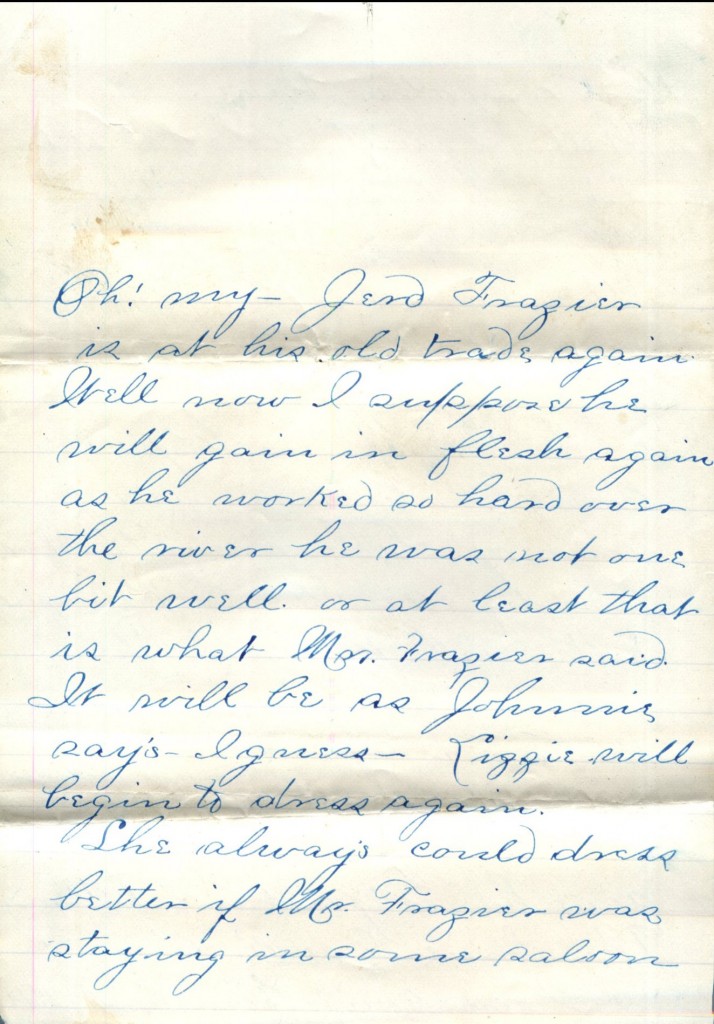 Oh! my- Jerd Frazier
is at his old trade again.
Well now I suppose he
will gain in flesh again
as he worked so hard over
the river he was not one
bit well. or at least that
is what Mrs. Frazier said.
It will be as Johnnie
say's- I guess- Lizzie will
begin to dress again.
She always could dress
better if Mr. Frazier was
staying in some saloon